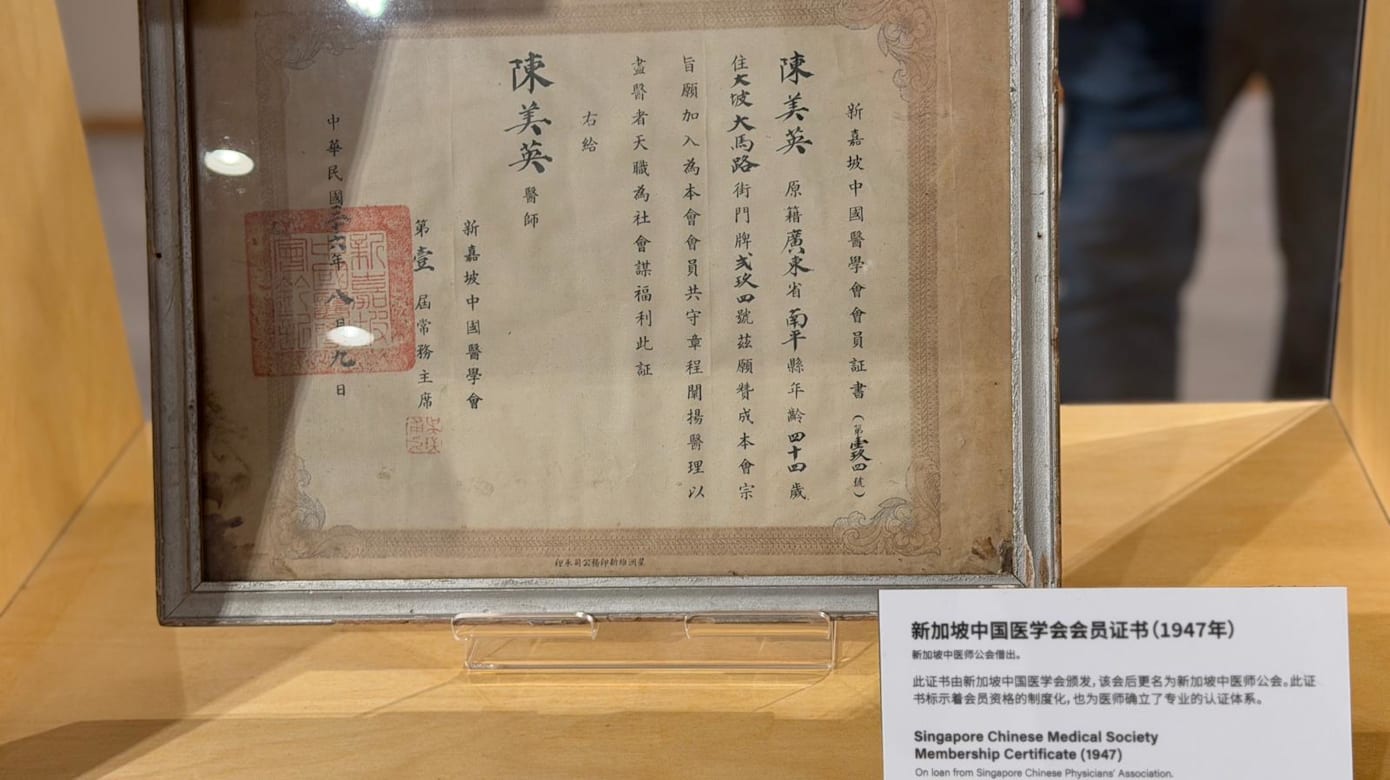 新嘉坡中國醫學會會員証書(第壹玖四號)
陳美英原籍廣東省南平縣年齡四十四歲
住大坡大馬路街門牌弍玖四號茲願贊成本會宗
旨願加入為本會會員共守章程闡揚醫理以
盡醫者天職為社會謀福利此証
右給
陳美英醫師
新嘉坡中國醫學會
第壹屆常務主席
中華民國卅六年八月九日
星洲維新印務公司承印
新加坡中国医学会会员证书(1947年)
新加坡中医师公会借出。
此证书由新加坡中国医学会颁发,该会后更名为新加坡中医师公会。此证
书标示着会员资格的制度化,也为医师确立了专业的认证体系。
Singapore Chinese Medical Society
Membership Certificate (1947)
On loan from Singapore Chinese Physicians' Association.